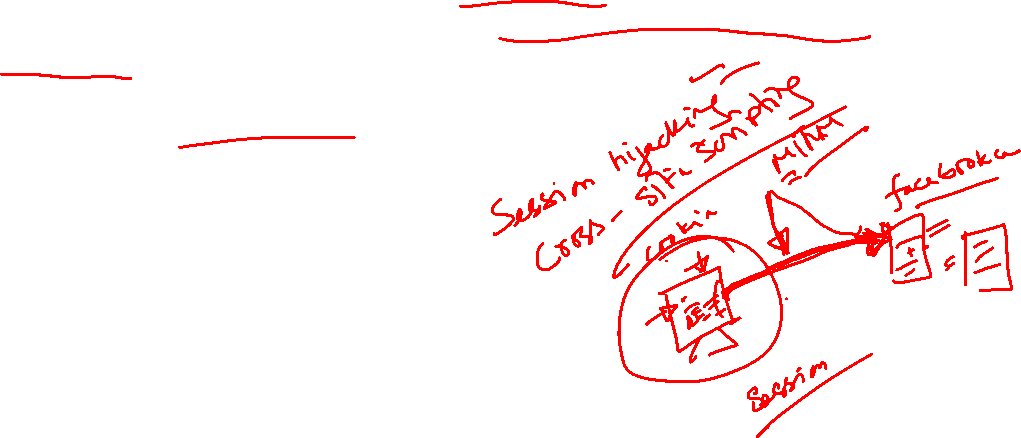 Session hijacking
Cross-Site Scripting
MITM
cookie
Session